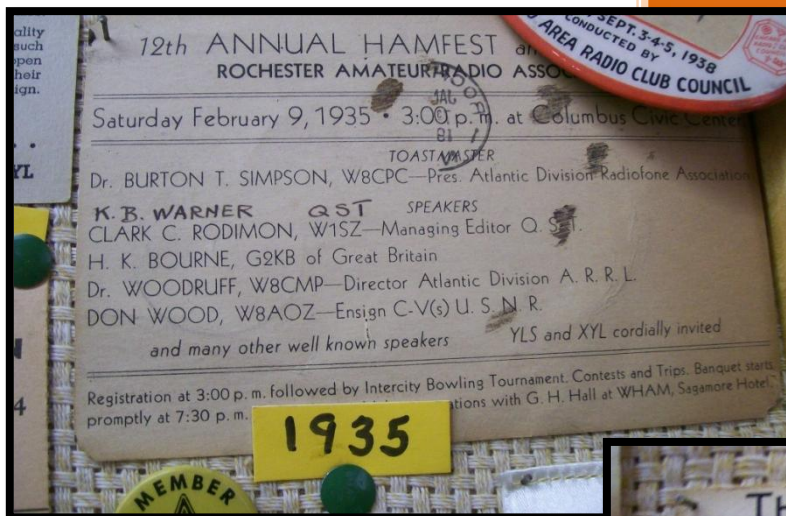 ality
such
open
their
ign.
YL
4
12th ANNUAL HAMFEST
ROCHESTER AMATEUR RADIO
Saturday February 9, 1935 • 3:00 p. m. at Columbus Civic Center
TOASTMASTER
Dr. BURTON T. SIMPSON, W8CPC—Pres. Atlantic Division Radiofone Association
K. B. WARNER QST SPEAKERS
CLARK C. RODIMON, W1SZ—Managing Editor Q. S. T.
H. K. BOURNE, G2KB of Great Britain
Dr. WOODRUFF, W8CMP—Director Atlantic Division A. R. R. L.
DON WOOD, W8AOZ—Ensign C-V(s) U. S. N. R.
and many other well known speakers YLS and XYL cordially invited
Registration at 3:00 p. m. followed by Intercity Bowling Tournament. Contests and Trips. Banquet starts
promptly at 7:30 p. m. with G. H. Hall at WHAM, Sagamore Hotel.
1935
MEMBER
SEPT. 3-4-5, 1938
CONDUCTED BY
AREA RADIO CLUB COUNCIL
TH